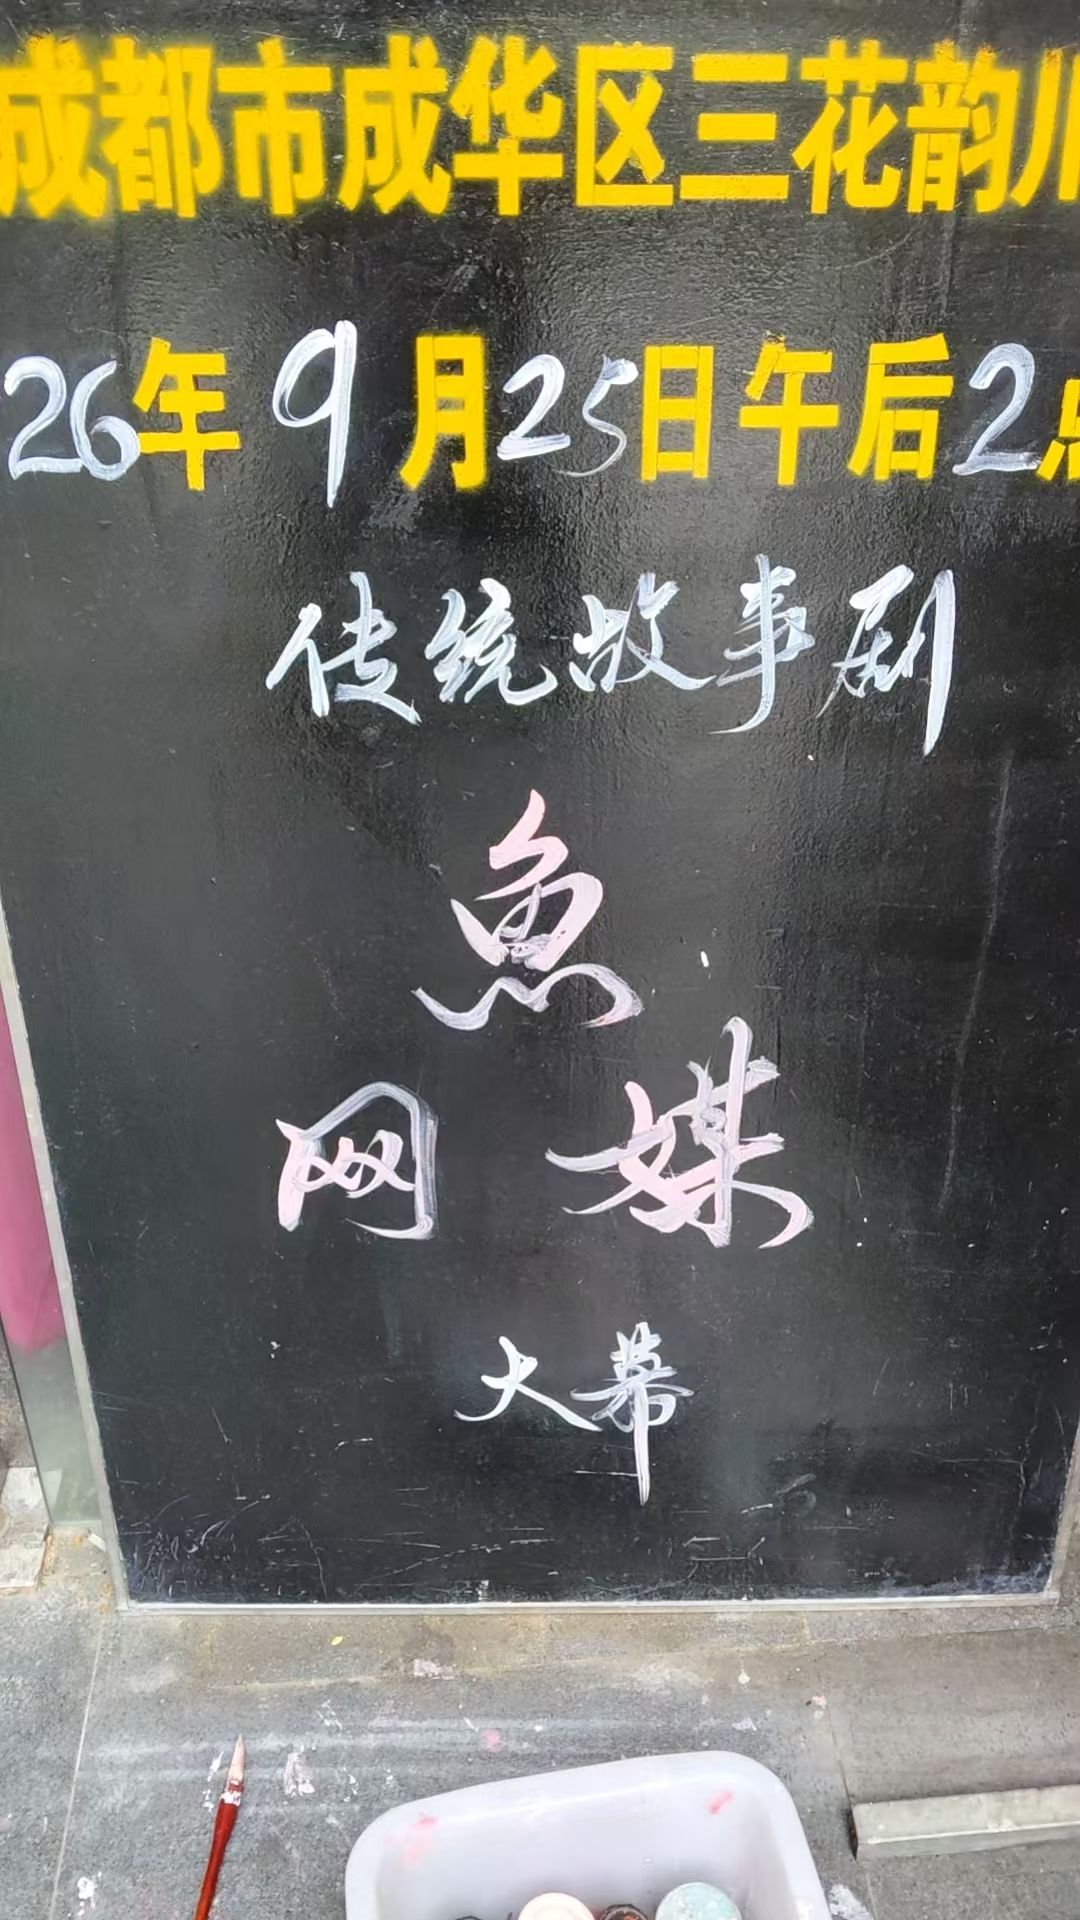 成都市成华区三花韵川
26年9月25日午后2点
传统故事剧
鱼
网 媒
大幕